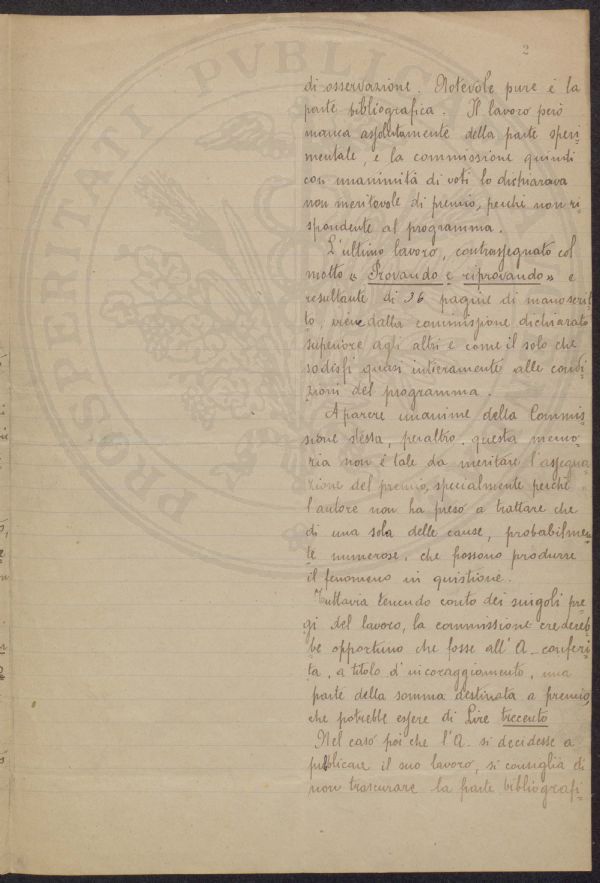 2
di osservazione. Notevole pure è la
parte bibliografica. Il lavoro però
manca assolutamente della parte speri-
mentale, e la commissione quindi
con unanimità di voti lo dichiarava
non meritevole di premio, perchè non ri-
spondente al programma.
L'ultimo lavoro, contrassegnato col
motto « Provando e riprovando » e
resultante di 96 pagine di manoscrit-
to, viene dalla commissione dichiarato
superiore agli altri e come il solo che
sodisfi quasi intieramente alle condi-
zioni del programma.
A parere unanime della Commis-
sione stessa, peraltro, questa memo-
ria non è tale da meritare l'assegna-
zione del premio, specialmente perchè
l'autore non ha preso a trattare che
di una sola delle cause, probabilmen-
te numerose, che possono produrre
il fenomeno in quistione.
Tuttavia tenendo conto dei singoli pre-
gi del lavoro, la commissione credereb-
be opportuno che fosse all'A. conferi-
ta, a titolo d'incoraggiamento, una
parte della somma destinata a premio,
che potrebbe essere di Lire trecento
Nel caso poi che l'A. si decidesse a
pubblicare il suo lavoro, si consiglia di
non trascurare la parte bibliografi-
PROSPERITATI PVBLICAE